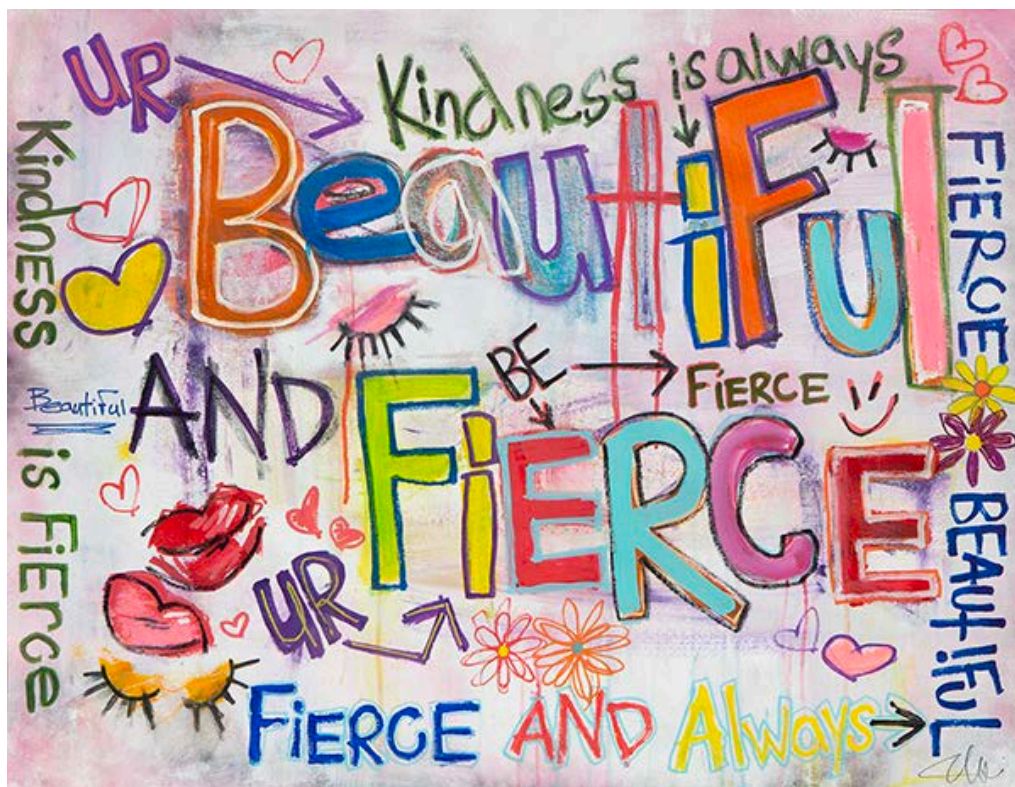 UR
Kindness is always
Beautiful
Kindness is Fierce
FiERCE
Beautiful
AND
BE
FiERCE
FiERCE
UR
BEAUtiFuL
FiERCE AND Always